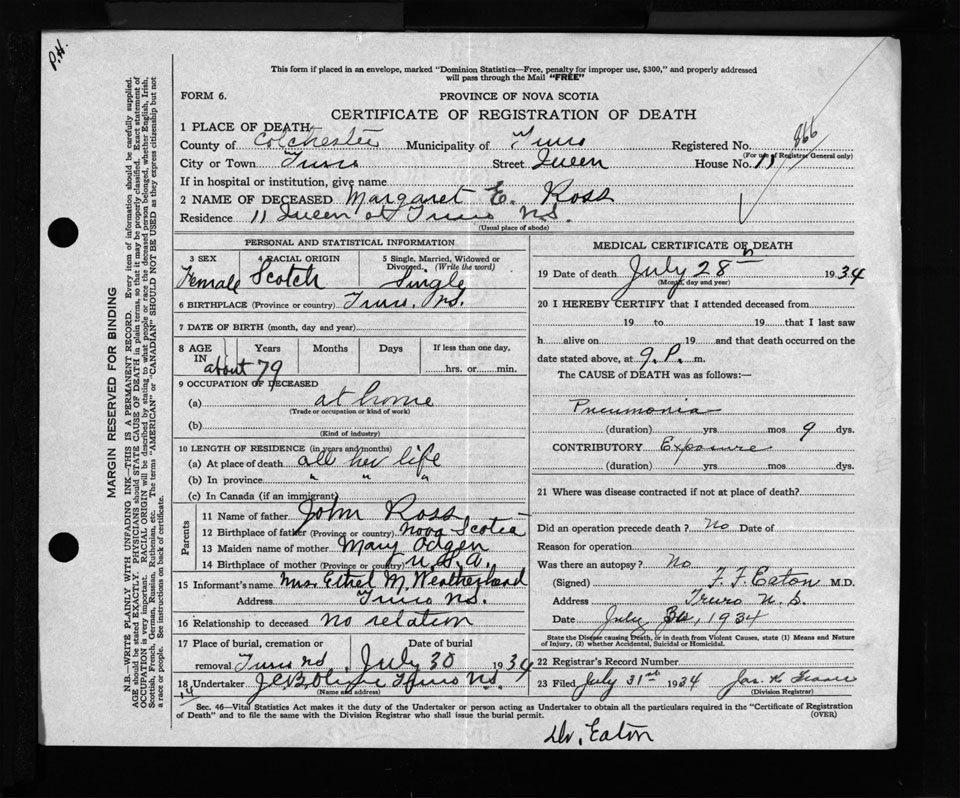 P.H.
This form if placed in an envelope, marked "Dominion Statistics—Free, penalty for improper use, $300," and properly addressed
will pass through the Mail "FREE"
FORM 6.
PROVINCE OF NOVA SCOTIA
CERTIFICATE OF REGISTRATION OF DEATH
1 PLACE OF DEATH
County of Colchester Municipality of Truro Registered No. 866
(For use of Registrar General only)
City or Town Truro Street Queen House No. 11
If in hospital or institution, give name
2 NAME OF DECEASED Margaret E. Ross
Residence 11 Queen st Truro N.S.
(Usual place of abode)
PERSONAL AND STATISTICAL INFORMATION
3 SEX Female
4 RACIAL ORIGIN Scotch
5 Single, Married, Widowed or Divorced. (Write the word) Single
6 BIRTHPLACE (Province or country) Truro. NS.
7 DATE OF BIRTH (month, day and year)
8 AGE IN Years Months Days If less than one day,
about 79 hrs. or min.
9 OCCUPATION OF DECEASED
(a) at home
(Trade or occupation or kind of work)
(b)
(Kind of industry)
10 LENGTH OF RESIDENCE (in years and months)
(a) At place of death all her life
(b) In province " " "
(c) In Canada (if an immigrant)
Parents
11 Name of father John Ross
12 Birthplace of father (Province or country) Nova Scotia
13 Maiden name of mother Mary Odgen
14 Birthplace of mother (Province or country) U.S.A.
15 Informant's name Mrs. Ethel M. Weatherhead
Address Truro NS.
16 Relationship to deceased no relation
17 Place of burial, cremation or Date of burial
removal Truro July 30 1934
18 Undertaker Truro NS.
(Name and address)
14
MEDICAL CERTIFICATE OF DEATH
19 Date of death July 28 h 1934
(Month, day and year)
20 I HEREBY CERTIFY that I attended deceased from
19 to 19 that I last saw
h alive on 19 and that death occurred on the
date stated above, at 9. P. m.
The CAUSE of DEATH was as follows:—
Pneumonia
(duration) yrs mos 9 dys.
CONTRIBUTORY Exposure
(duration) yrs mos dys.
21 Where was disease contracted if not at place of death?
Did an operation precede death? No Date of
Reason for operation
Was there an autopsy? No
(Signed) F. F. Eaton M.D.
Address Truro N.S.
Date July 30, 1934
State the Disease causing Death, or in death from Violent Causes, state (1) Means and Nature
of Injury, (2) whether Accidental, Suicidal or Homicidal.
22 Registrar's Record Number
23 Filed July 31st 1934 Jas. K
(Division Registrar)
Sec. 46—Vital Statistics Act makes it the duty of the Undertaker or person acting as Undertaker to obtain all the particulars required in the "Certificate of Registration
of Death" and to file the same with the Division Registrar who shall issue the burial permit. (OVER)
Dr. Eaton
MARGIN RESERVED FOR BINDING
N.B.—WRITE PLAINLY WITH UNFADING INK—THIS IS A PERMANENT RECORD. Every item of information should be carefully supplied.
AGE should be stated EXACTLY. PHYSICIANS should STATE CAUSE OF DEATH in plain terms, so that it may be properly classified. Exact statement of
OCCUPATION is very important. RACIAL ORIGIN will be described by stating to what people or race the deceased person belonged, whether English, Irish,
Scottish, French, German, Russian, Ruthenian, etc. The terms "AMERICAN" or "CANADIAN" SHOULD NOT BE USED as they express citizenship but not
a race or people. See instructions on back of certificate.